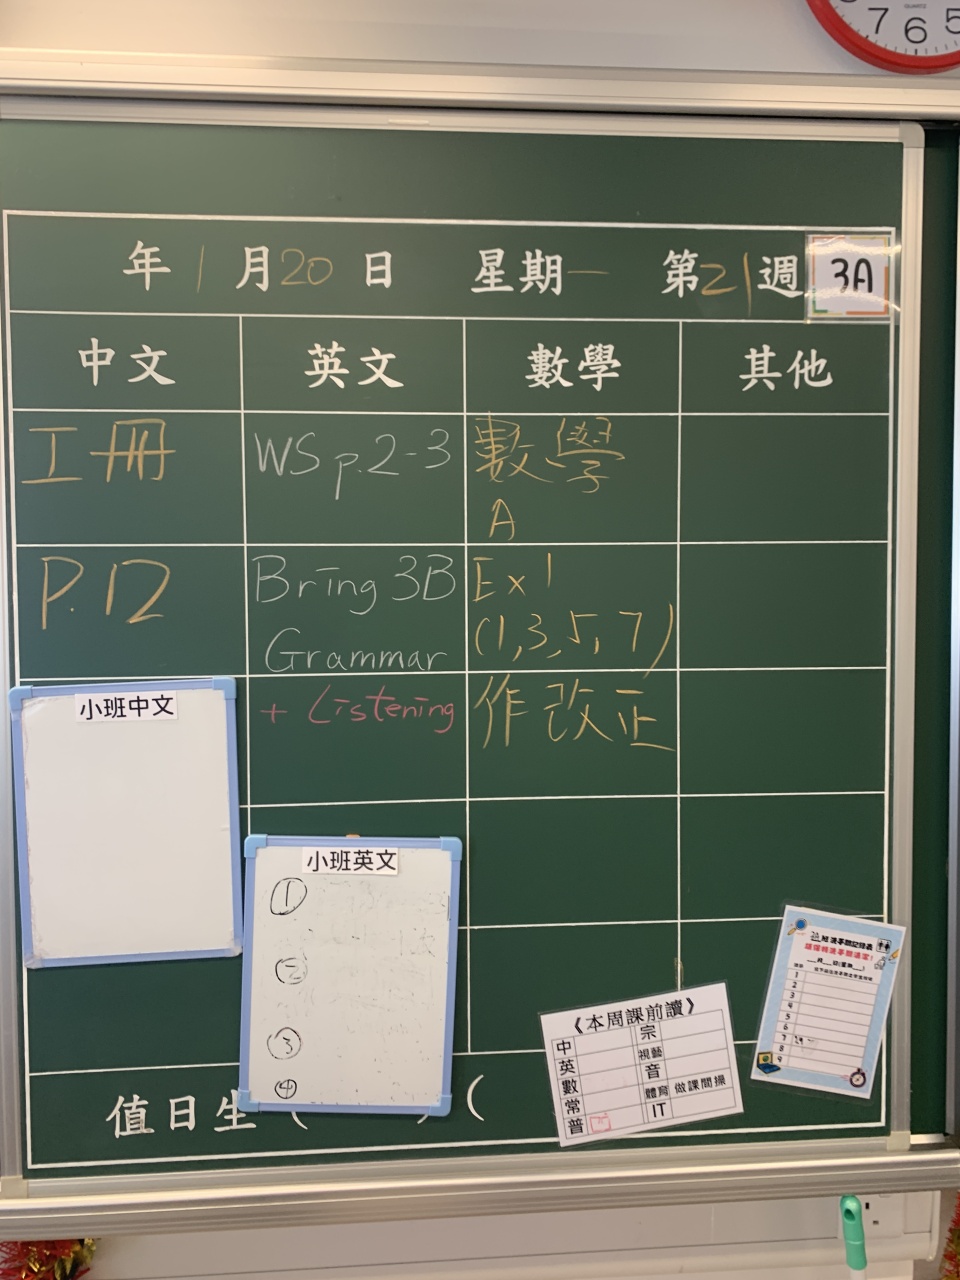 7 6 5
QUARTZ
年 1 月 20 日 星期一 第 21 週 3A
中文 英文 數學 其他
工冊
WS p.2-3
數學
A
P.12
Bring 3B
Grammar
Ex 1
(1,3,5,7)
+ Listening
作改正
小班中文
小班英文
①
②
③
④
值日生 ( ) (
《本周課前讀》
中 宗
英 視藝
數 音
常 體育 做課間操
普 IT
1
2
3
4
5
6
7
8
9